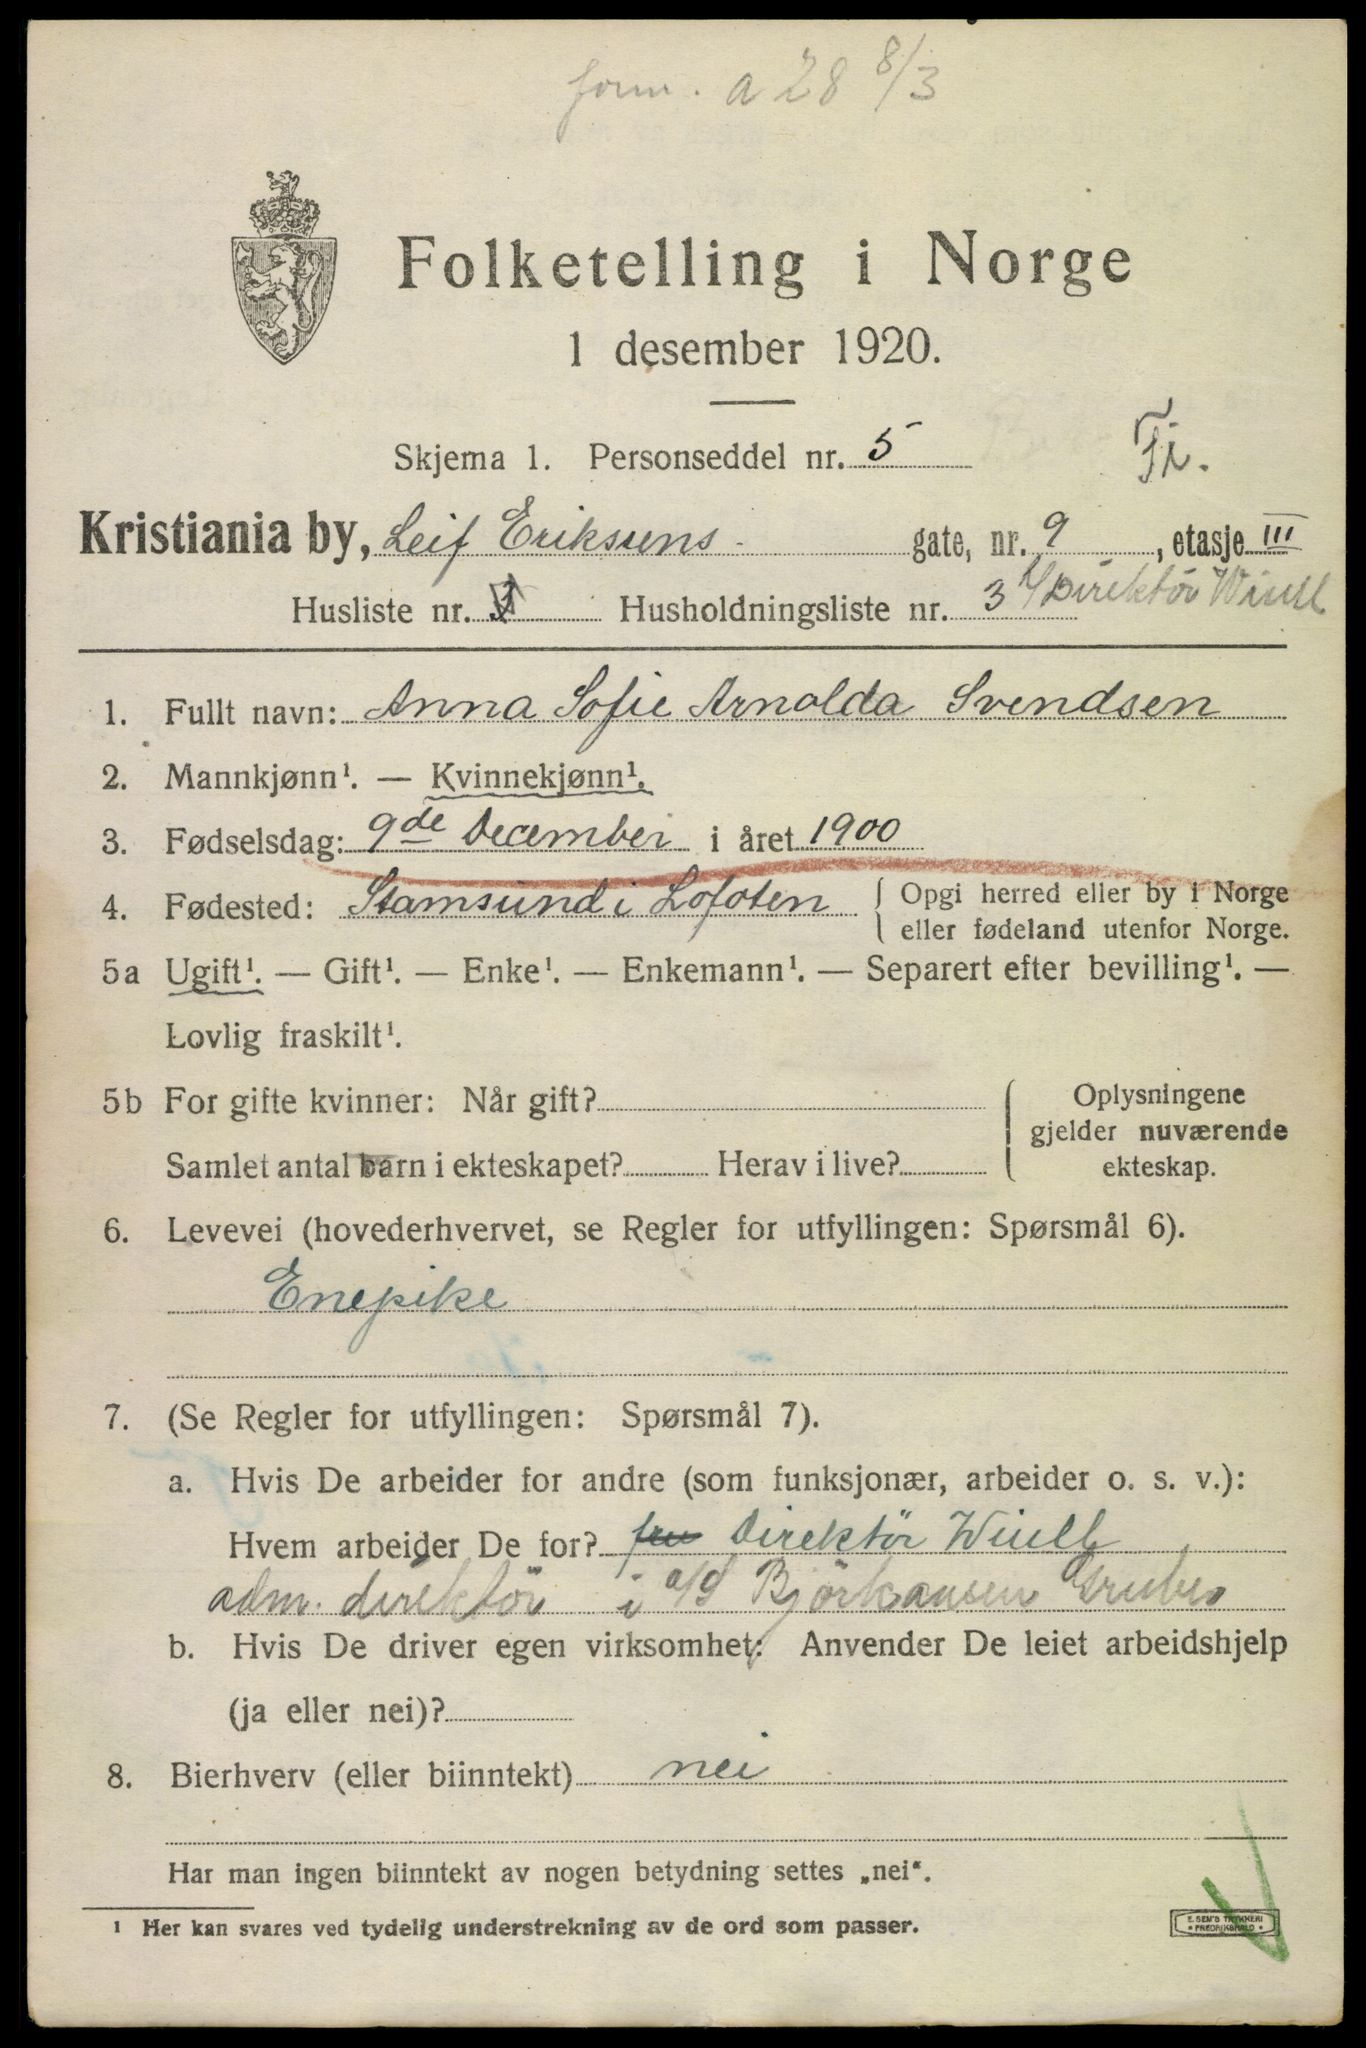 form. a 28 8/3
Folketelling i Norge
1 desember 1920.
Skjema 1. Personseddel nr. 5
Ti.
Kristiania by, Leif Eriksens gate, nr. 9, etasje III
Husliste nr. Husholdningsliste nr. 3 Direktör
1. Fullt navn: Anna Sofie Arnolda Svendsen
2. Mannkjønn¹. — Kvinnekjønn¹.
3. Fødselsdag: 9de December i året 1900
4. Fødested: Stamsund i Lofoten { Opgi herred eller by i Norge
eller fødeland utenfor Norge.
5a Ugift¹. — Gift¹. — Enke¹. — Enkemann¹. — Separert efter bevilling¹. —
Lovlig fraskilt¹.
5b For gifte kvinner: Når gift? { Oplysningene
gjelder nuværende
Samlet antal barn i ekteskapet? Herav i live? ekteskap.
6. Levevei (hovederhvervet, se Regler for utfyllingen: Spørsmål 6).
Enepike
7. (Se Regler for utfyllingen: Spørsmål 7).
a. Hvis De arbeider for andre (som funksjonær, arbeider o. s. v.):
Hvem arbeider De for? fru Direktör
adm. direktör i a/s Gruber
b. Hvis De driver egen virksomhet: Anvender De leiet arbeidshjelp
(ja eller nei)?
8. Bierhverv (eller biinntekt) nei
Har man ingen biinntekt av nogen betydning settes „nei“.
¹ Her kan svares ved tydelig understrekning av de ord som passer.
E. SEM'S TRYKKERI
• FREDRIKSHALD •